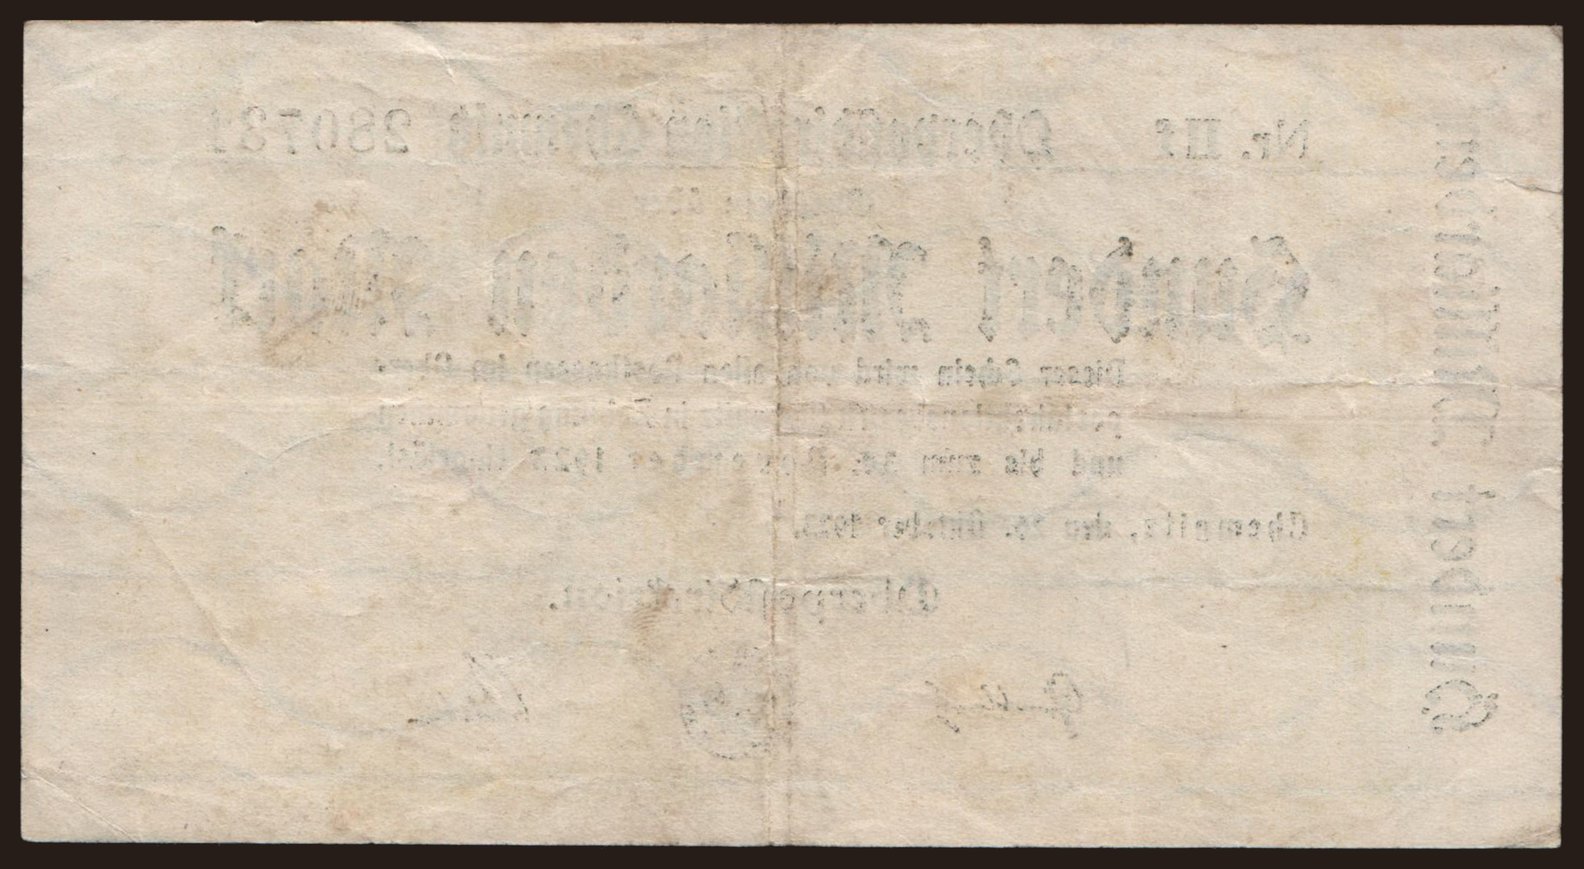 Nr. II f Oberpostdirektion Chemnitz 280731
Gutschein über
Hundert Milliarden Mark
Dieser Schein wird von allen Postkassen im Ober-
postdirektionsbezirk Chemnitz in Zahlung genommen
und bis zum November 1923 eingelöst.
Chemnitz, den 26. Oktober 1923.
Oberpostdirektion.
Hundert Milliarden